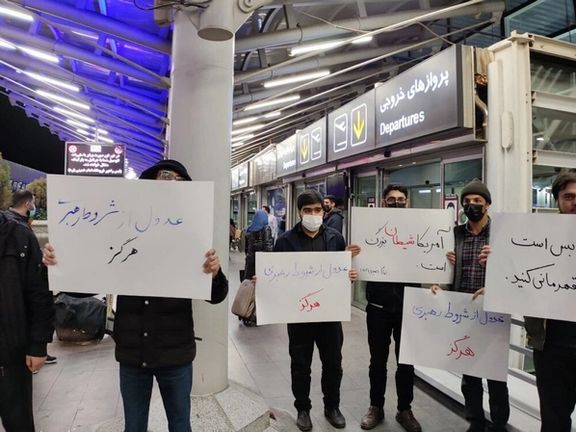 پروازهای خروجی
Departures
عدول از شروط رهبری
هرگز
عدول از شروط رهبری
هرگز
آمریکا شیطان بزرگ
است
عدول از شروط رهبری
هرگز
بس است
قهرمانی نکنید.